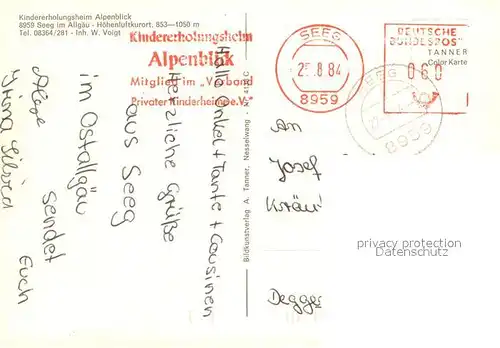 Kindererholungsheim Alpenblick
8959 Seeg im Allgäu - Höhenluftkurort, 853—1050 m
Tel. 08364/281 - Inh. W. Voigt
Kindererholungsheim
Alpenblick
Mitglied im „Verband
Privater Kinderheime e.V."
SEEG
25.8.84
8959
DEUTSCHE
BUNDESPOS
060
TANNER
Color Karte
SEEG
8959
Hallo Onkel + Tante + Cousinen
Herzliche Grüße
aus Seeg
im Ostallgäu
sendet
Euch
Bildkunstverlag A. Tanner, Nesselwang -
An
Josef
Degge
privacy protection
Datenschutz